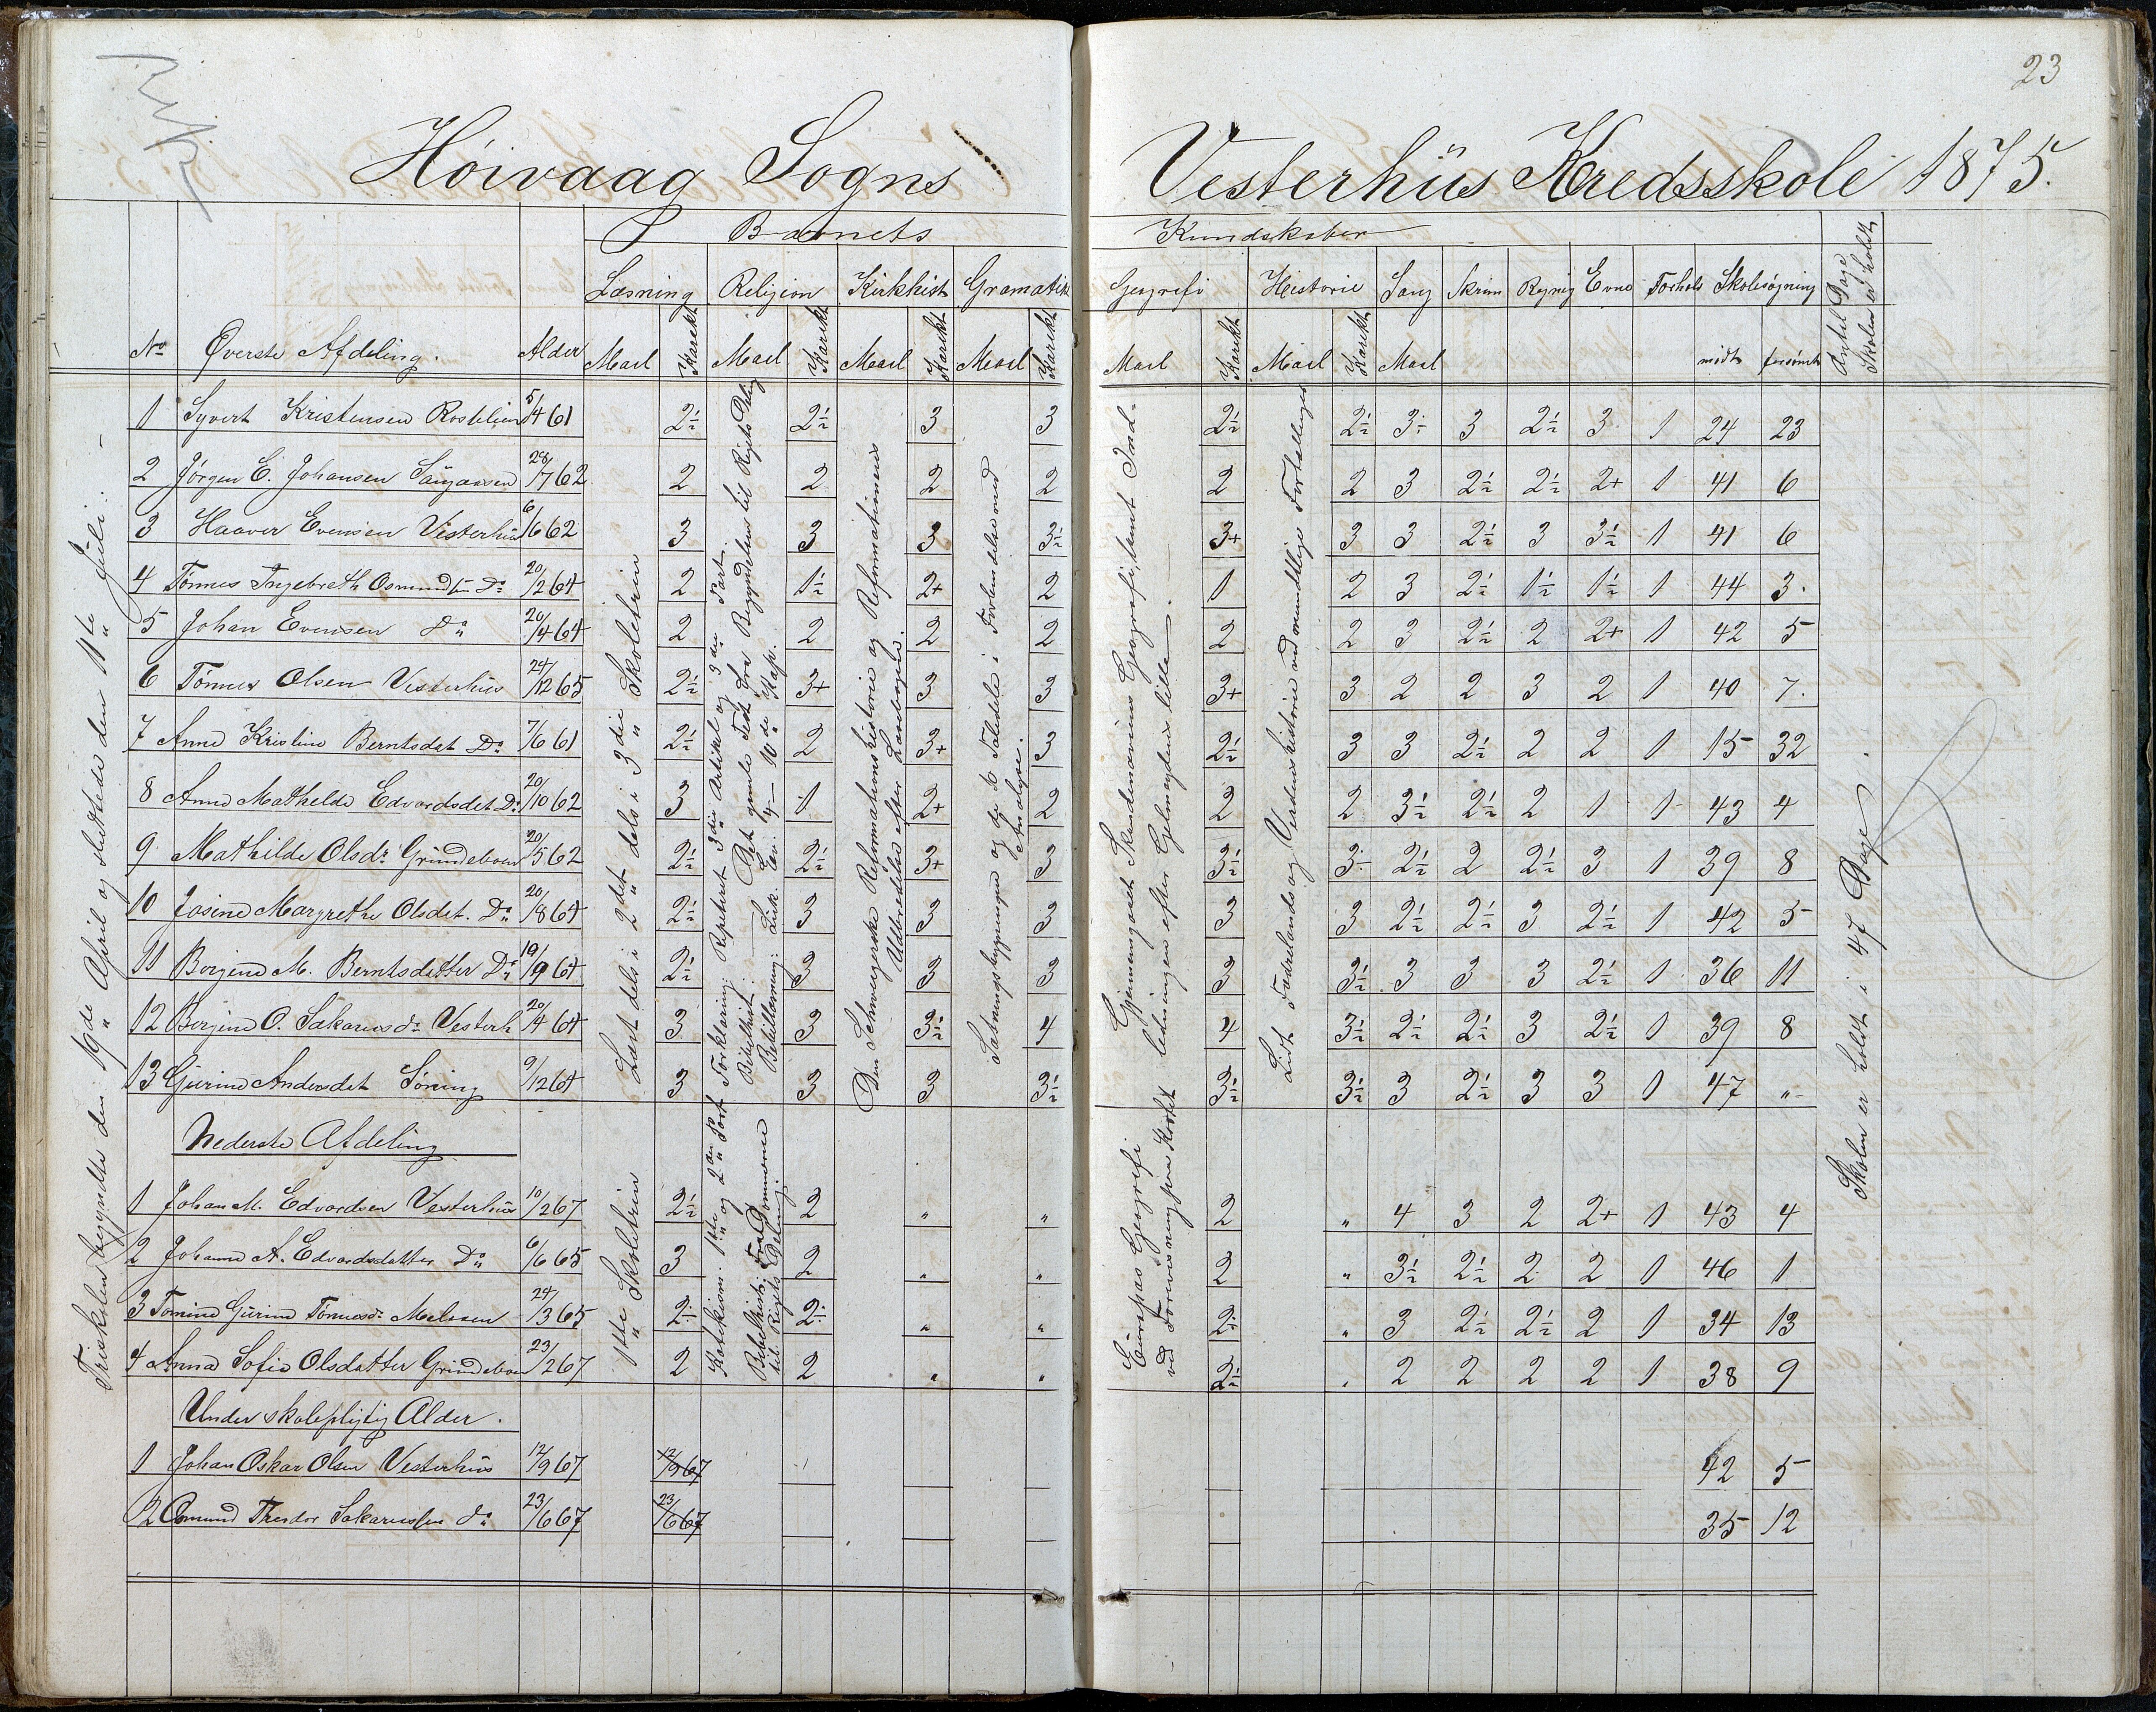 23
Høivaag Sogns Vesterhüs Kredsskole 1875.
Barnets Kundskaber
Læsning Religion Kirkhist Gramatik Geografi Historie Sang Skrivn Regnig Evne Forhold Skolesøgning Antal Dage Skolen er holdt
No Øverste Afdeling. Alder Maal Karakt Maal Karakt Maal Karakt Maal Karakt Maal Karakt Maal Karakt Maal mødt forsømt
1 Syvert Kristensen 5/4 61 2½ 2½ 3 3 2½ 2½ 3÷ 3 2½ 3 1 24 23
2 Jørgen E. Johansen 28/7 62 2 2 2 2 2 2 3 2½ 2½ 2+ 1 41 6
3 Haaver Evensen Vesterhüs 6/6 62 3 3 3 3½ 3+ 3 3 2½ 3 3½ 1 41 6
4 Tønnes Ingebreth Osmundsen Do 20/2 64 2 1½ 2+ 2 1 2 3 2½ 1½ 1½ 1 44 3.
5 Johan Evensen Do 20/4 64 2 2 2 2 2 2 3 2½ 2 2+ 1 42 5
6 Tønnes Olsen Vesterhüs 24/12 65 2½ 3+ 3 3 3+ 3 2 2 3 2 1 40 7.
7 Anne Kristine Berntsdat Do 7/6 61 2½ 2 3+ 3 2½ 3 3 2½ 2 2 1 15 32
8 Anne Mathilde Edvardsdat Do 20/10 62 3 1 2+ 2 2 2 3½ 2½ 2 1 1 43 4
9 Mathilde Olsdr Gründeboen 20/5 62 2½ 2½ 3+ 3 3½ 3÷ 2½ 2 2½ 3 1 39 8
10 Josine Margrethe Olsdat. Do 20/8 64 2½ 3 3 3 3 3 2½ 2½ 3 2½ 1 42 5
11 Borgine M. Berntsdatter Do 19/9 64 2½ 3 3 3 3 3½ 3 3 3 2½ 1 36 11
12 Borgine O. Sakariasdr Vesterh 20/4 64 3 3 3½ 4 4 3½ 2½ 2½ 3 2½ 1 39 8
13 Gurine Andersdat 9/12 64 3 3 3 3½ 3½ 3½ 3 2½ 3 3 1 47 "
Nederste Afdeling
1 Johan M. Edvardsen Vesterhüs 10/2 67 2½ 2 " " 2 " 4 3 2 2+ 1 43 4
2 Johanne A. Edvardsdatter Do 6/6 65 3 2 " " 2 " 3½ 2½ 2 2 1 46 1
3 Tomine Gurine Tønnesdr 24/3 65 2÷ 2÷ " " 2÷ " 3 2½ 2½ 2 1 34 13
4 Anna Sofie Olsdatter Grindeboen 23/2 67 2 2 " " 2½ " 2 2 2 2 1 38 9
Under skolepligtig Alder.
1 Johan Oskar Olsen Vesterhüs 12/9 67 12/9 67 42 5
2 Osmund Theodor Sakariassen do 23/6 67 23/6 67 35 12
Friskolen begyndte den 19de April og sluttede den 11te Juli.
Læst dels i 2det dels i 3die Skoletrin
1ste Skoletrin
Forklaring: Repetert 3die Artikel og 3die Part.
Bibelhist.: Det gamle Test. fra Begyndelsen til Rigets Deling
Bibellæsning: Luk. Ev. 4 – 10de Kap.
Katekism. 1ste og 2den Part
Bibelhist: Fra Dommerne
til Rigets Deling.
Den Schweizerske Reformationshistorie og Reformationens
Udbredelse efter Landmark.
Sætningsbygningen og de 10 Taledele i Forbindelse med
Analyse.
Gjennemgaaet Skandinaviens Geografi, samt Ind-
ledningen efter Geelmuydens lille.
Europas Geografi
ved Forevisning paa Kortet
Lidt Fædrelands og Verdenshistorie ved mundtlige Fortællinger
Skolen er holdt i 47 Dage.